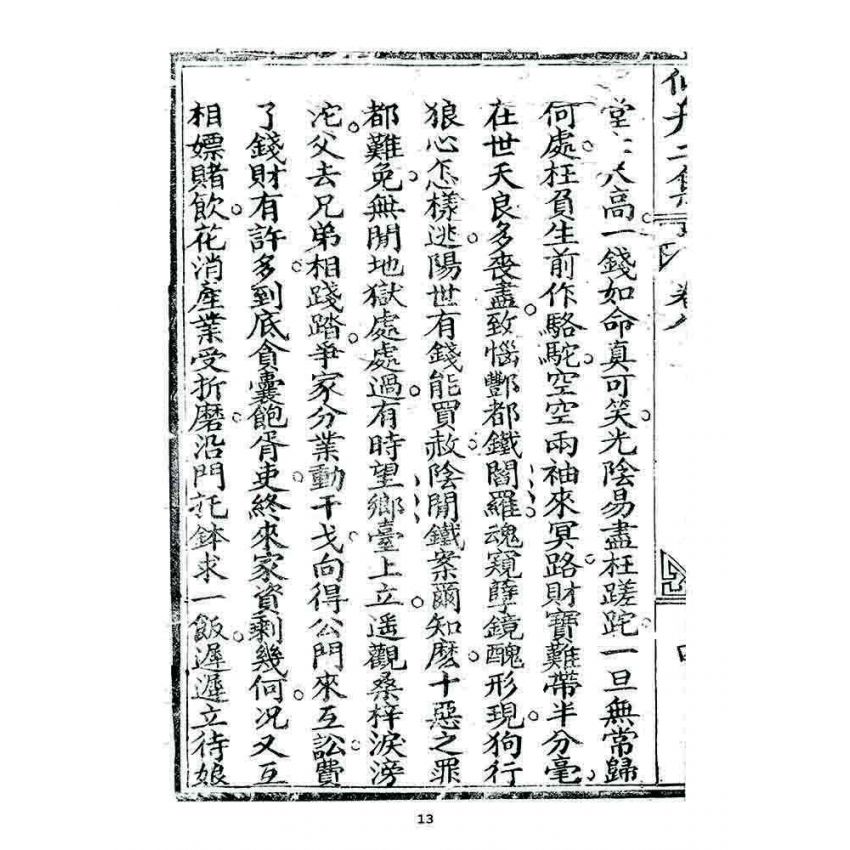 仙丹二集 卷八
堂高。一錢如命真可笑。光陰易盡枉蹉跎。一旦無常歸
何處。枉負生前作駱駝。空空兩袖來冥路。財寶難帶半分毫。
在世天良多喪盡。致惱酆都鐵閻羅。魂窺孽鏡醜形現。狗行
狼心怎樣逃。陽世有錢能買赦。陰間鐵案爾知麽。十惡之罪
都難免。無間地獄處處過。有時望鄉臺上立。遥觀桑梓淚滂
沱。父去兄弟相踐踏。爭家分業動干戈。向得公門來互訟。費
了錢財有許多。到底貪囊飽胥吏。終來家資剩幾何。况又互
相嫖賭飲。花消產業受折磨。沿門託鉢求一飯。遲遲立待娘
13